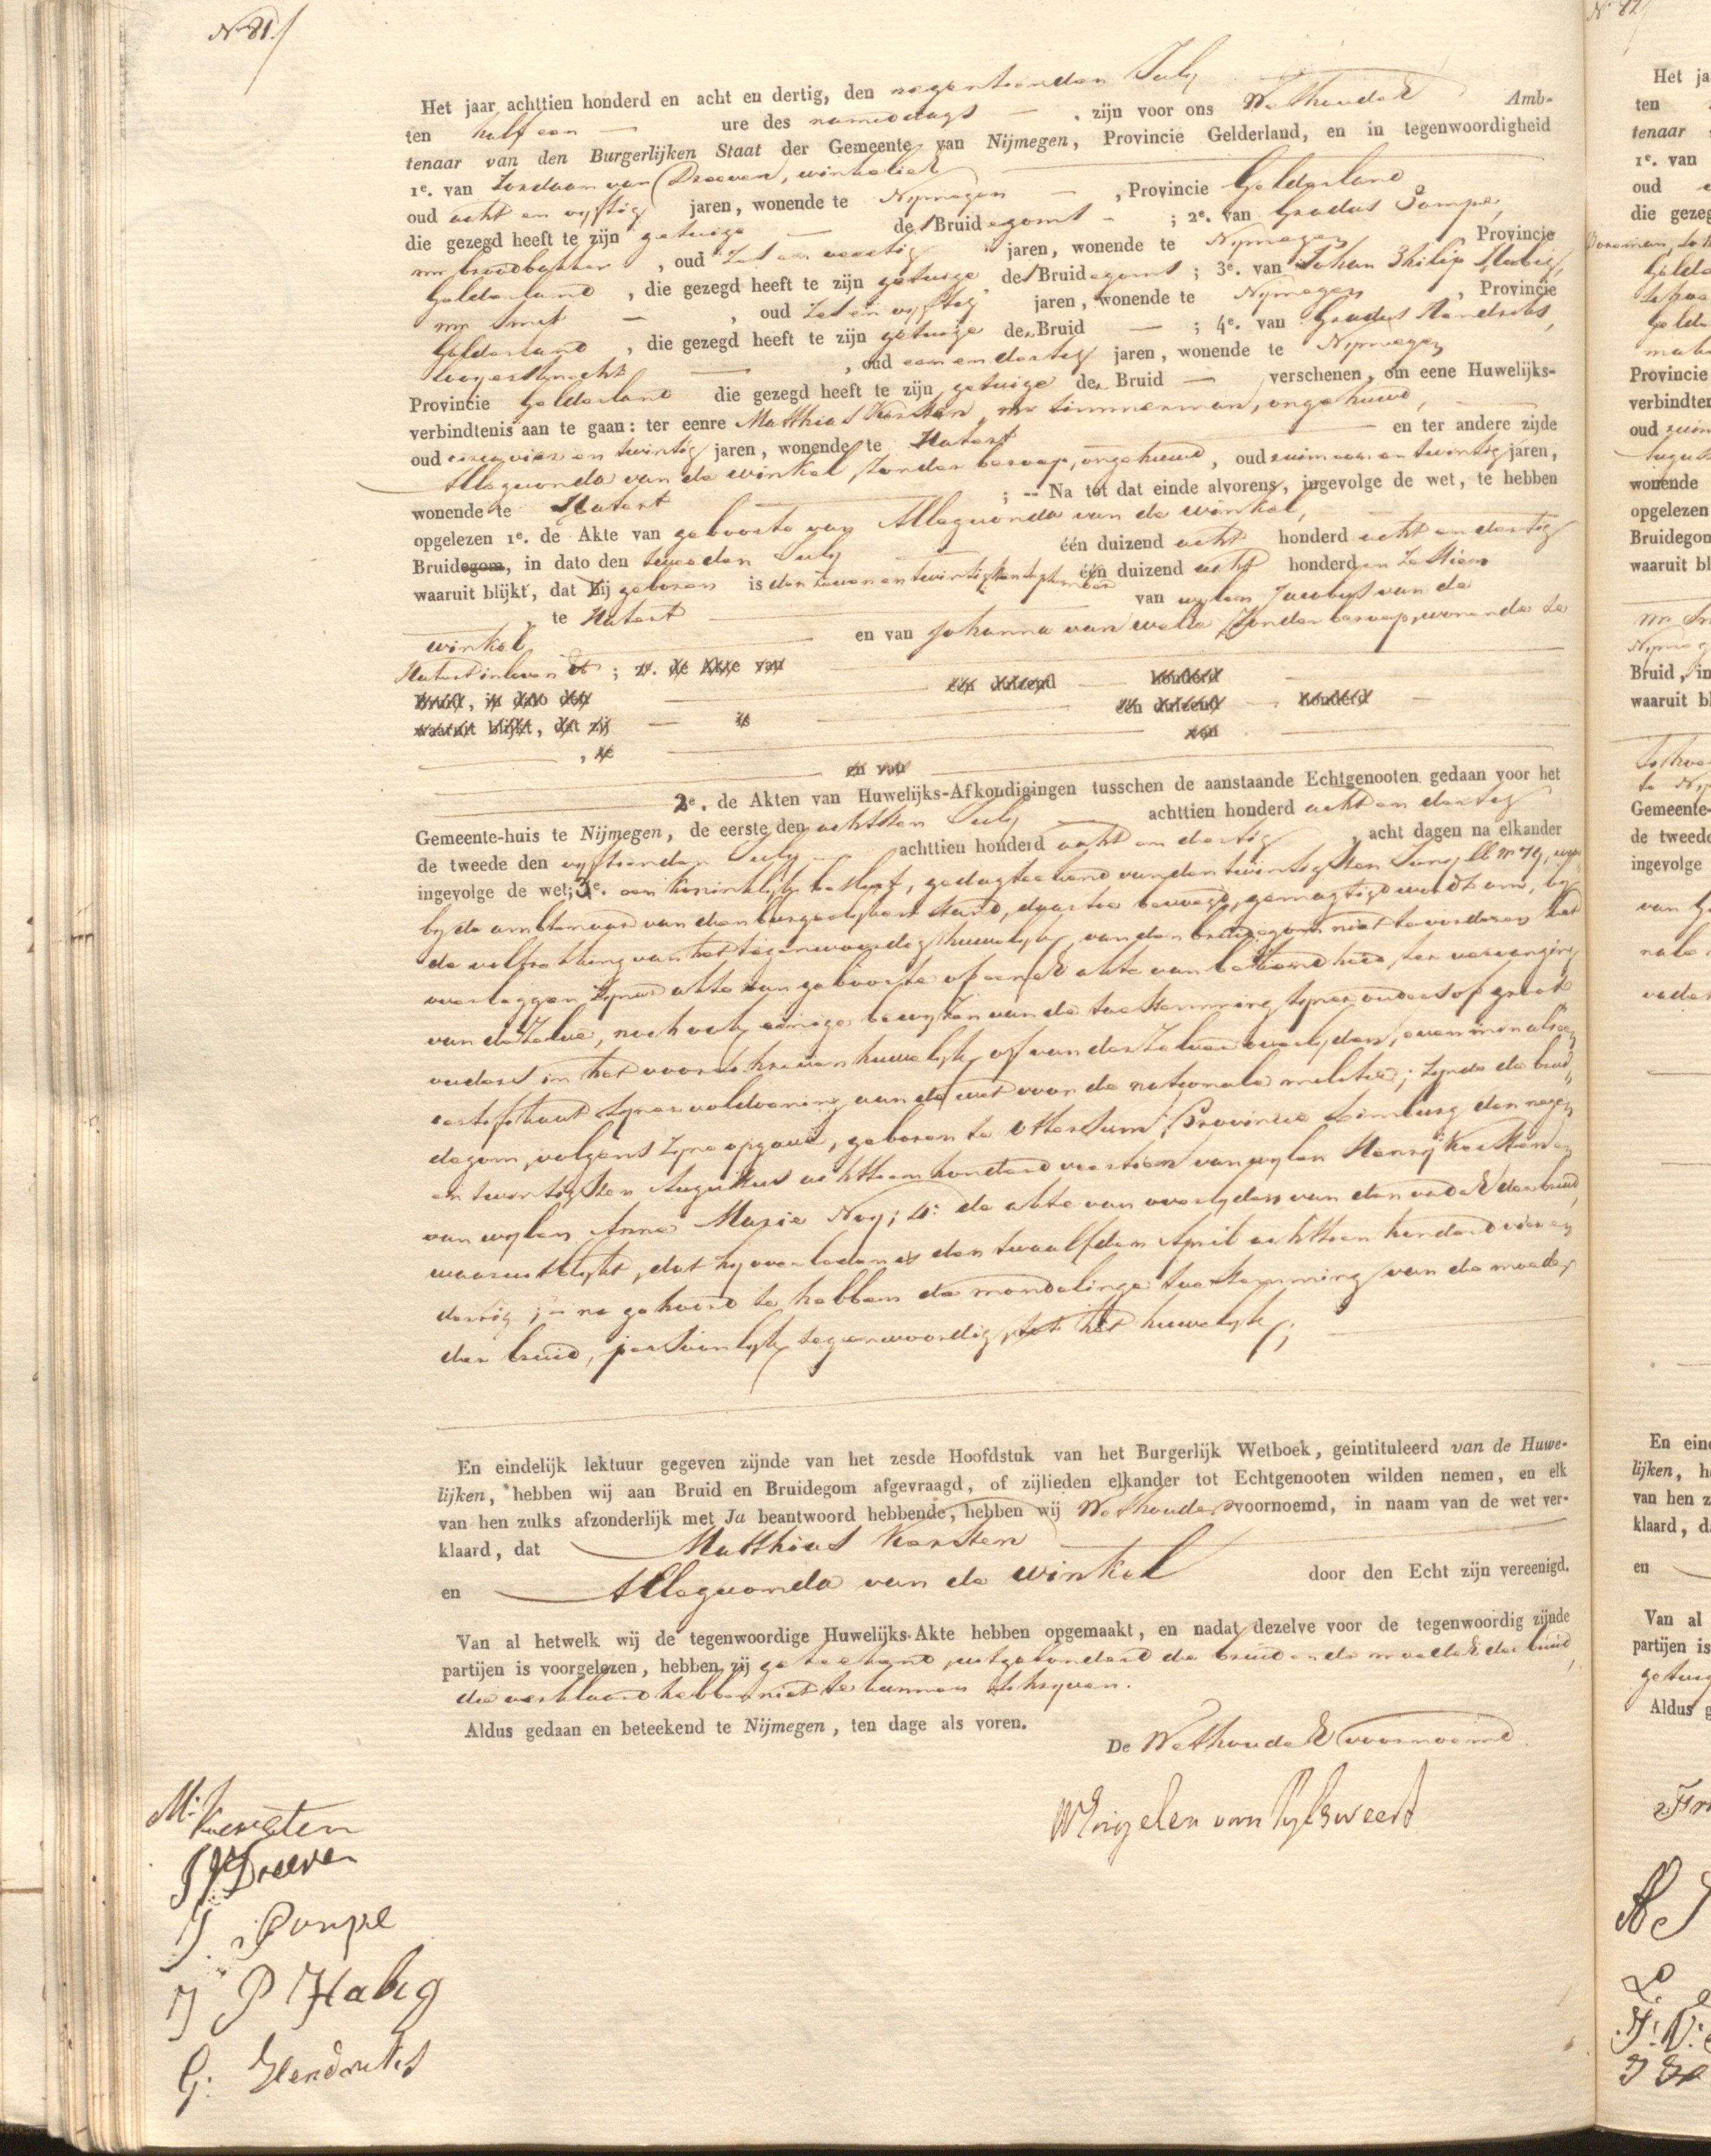 N° 81.
Het jaar achttien honderd en acht en dertig, den negentienden July
ten half een ure des namiddags, zijn voor ons Wethouder Amb-
tenaar van den Burgerlijken Staat der Gemeente van Nijmegen, Provincie Gelderland, en in tegenwoordigheid
1e. van Jordaan van Dreeven, winkelier
oud acht en vyftig jaren, wonende te Nymegen, Provincie Gelderland
die gezegd heeft te zijn getuige des Bruidegoms; 2e. van Gradus Pompe,
mr broodbakker, oud zes en veertig jaren, wonende te Nymegen Provincie
Gelderland, die gezegd heeft te zijn getuige des Bruidegoms; 3e. van Johan Philip Habig,
mr smit, oud zes en vyftig jaren, wonende te Nymegen, Provincie
Gelderland, die gezegd heeft te zijn getuige der Bruid; 4e. van Gradus Hendriks,
, oud een en dertig jaren, wonende te Nymegen
Provincie Gelderland die gezegd heeft te zijn getuige der Bruid verschenen, om eene Huwelijks-
verbindtenis aan te gaan: ter eenre Matthias Kersten, mr timmerman, ongehuwd,
oud vier en twintig jaren, wonende te Hatert en ter andere zijde
Allegonda van de winkel, zonder beroep, ongehuwd, oud ruim een en twintig jaren,
wonende te Hatert; -- Na tot dat einde alvorens, ingevolge de wet, te hebben
opgelezen 1e. de Akte van geboorte van Allegonda van de winkel,
Bruidegom, in dato den tweeden July één duizend acht honderd acht en dertig
waaruit blijkt, dat zij geboren is den zeven en twintigsten september één duizend acht honderd en zestien
te Hatert van wylen Jacobus van de
winkel en van Johanna van welle, zonder beroep, wonende te
Hatert in leven; 2e. de Akte van
Bruid, in dato den één duizend honderd
waaruit blijkt, dat zij is één duizend honderd
, te van
en van
2e. de Akten van Huwelijks-Afkondigingen tusschen de aanstaande Echtgenooten gedaan voor het
Gemeente-huis te Nijmegen, de eerste den achtsten July achttien honderd acht en dertig
de tweede den vyftienden July achttien honderd acht en dertig, acht dagen na elkander
ingevolge de wet; 3e. een koninklyk besluit, gedagteekend van den twintigsten Juny ll n° 79,
by de ambtenaar van den burgerlyken stand, daartoe bevoegd, gemagtigd wordt om, by
de voltrekking van het tegenwoordig huwelyk, van den bruidegom niet te vorderen het
overleggen zyner akte van geboorte of eener akte van bekendheid, ter vervanging
van dezelve, noch ook eenige bewyzen van de toestemming zyner ouders of groot
ouders in het voorschreven huwelyk, of van derzelver overlyden, even min als een
certifikaat zyner voldoening aan de wet voor de nationale militie; zynde de brui"
degom, volgens zyne opgave, geboren te Ottersum, Provincie Limburg den negen
en twintigsten Augustus achttien honderd veertien van wylen Henry Kersten en
van wylen Anna Maria Noy; 4e de akte van overlyden van den vader der bruid,
waaruit blykt, dat hy overleden is den twaalfden April achttien honderd vier en
dertig; - na gehoord te hebben de mondelinge toestemming van de moeder
der bruid, persoonlyk tegenwoordig, tot het huwelyk;
En eindelijk lektuur gegeven zijnde van het zesde Hoofdstuk van het Burgerlijk Wetboek, geintituleerd van de Huwe-
lijken, hebben wij aan Bruid en Bruidegom afgevraagd, of zijlieden elkander tot Echtgenooten wilden nemen, en elk
van hen zulks afzonderlijk met Ja beantwoord hebbende, hebben wij Wethouder voornoemd, in naam van de wet ver-
klaard, dat Matthias Kersten
en Allegonda van de winkel door den Echt zijn vereenigd.
Van al hetwelk wij de tegenwoordige Huwelijks-Akte hebben opgemaakt, en nadat dezelve voor de tegenwoordig zijnde
partijen is voorgelezen, hebben zij geteekend, uitgezonderd de bruid en de moeder der bruid,
die verklaard hebben niet te kunnen schryven.
Aldus gedaan en beteekend te Nijmegen, ten dage als voren.
De Wethouder voornoemd
M: Kersten
J V Dreeven
G. Pompe
J P Habig
G: Hendriks
Het ja
ten
tenaar
1e. van
oud
die gezeg
Provincie
verbindten
oud ruim
wonende
opgelezen
Bruidegom
waaruit bl
Bruid, in
waaruit bl
Gemeente-
de tweede
ingevolge
En eind
lijken, h
van hen z
klaard, d
en
Van al
partijen is
Aldus g